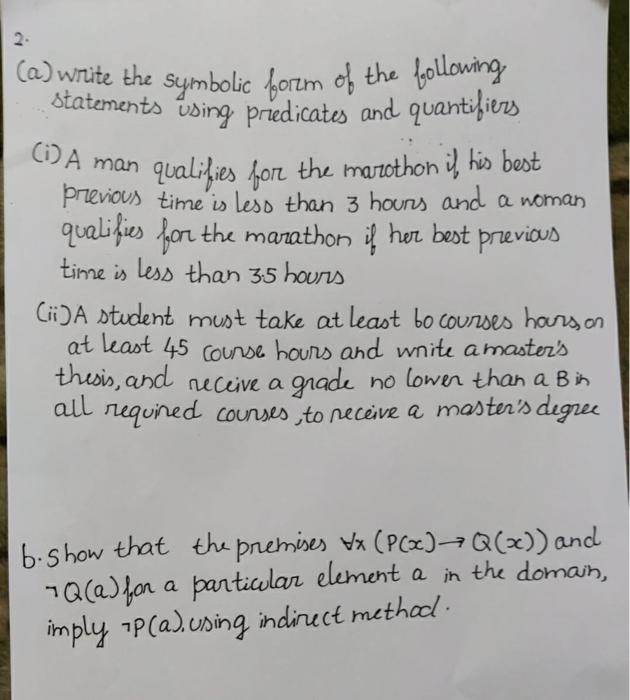 2.
(a) write the symbolic form of the following
statements using predicates and quantifiers
(i) A man qualifies for the marothon if his best
previous time is less than 3 hours and a woman
qualifies for the marathon if her best previous
time is less than 3.5 hours
(ii) A student must take at least 60 courses hours, or
at least 45 course hours and write a master's
thesis, and receive a grade no lower than a B in
all required courses, to receive a master's degree
b. show that the premises ∀x (P(x) → Q(x)) and
¬Q(a) for a particular element a in the domain,
imply ¬P(a). using indirect method.